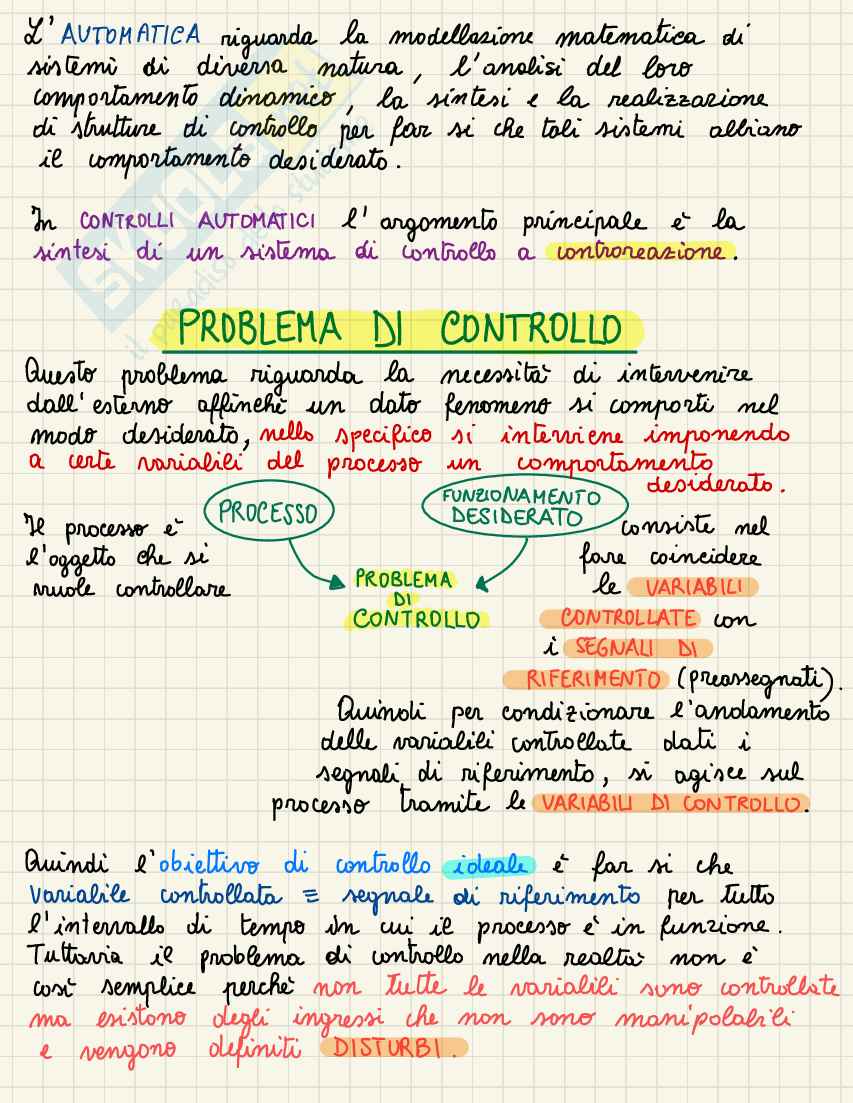 L'AUTOMATICA riguarda la modellazione matematica di
sistemi di diversa natura, l'analisi del loro
comportamento dinamico, la sintesi e la realizzazione
di strutture di controllo per far si che tali sistemi abbiano
il comportamento desiderato.
In CONTROLLI AUTOMATICI l'argomento principale è la
sintesi di un sistema di controllo a controreazione.
PROBLEMA DI CONTROLLO
Questo problema riguarda la necessità di intervenire
dall'esterno affinchè un dato fenomeno si comporti nel
modo desiderato, nello specifico si interviene imponendo
a certe variabili del processo un comportamento
desiderato.
PROCESSO
FUNZIONAMENTO
DESIDERATO
Il processo è
l'oggetto che si
vuole controllare
PROBLEMA
DI
CONTROLLO
consiste nel
fare coincidere
le VARIABILI
CONTROLLATE con
i SEGNALI DI
RIFERIMENTO (preassegnati).
Quindi per condizionare l'andamento
delle variabili controllate dati i
segnali di riferimento, si agisce sul
processo tramite le VARIABILI DI CONTROLLO.
Quindi l'obiettivo di controllo ideale è far si che
variabile controllata ≡ segnale di riferimento per tutto
l'intervallo di tempo in cui il processo è in funzione.
Tuttavia il problema di controllo nella realtà non è
così semplice perchè non tutte le variabili sono controllate
ma esistono degli ingressi che non sono manipolabili
e vengono definiti DISTURBI.